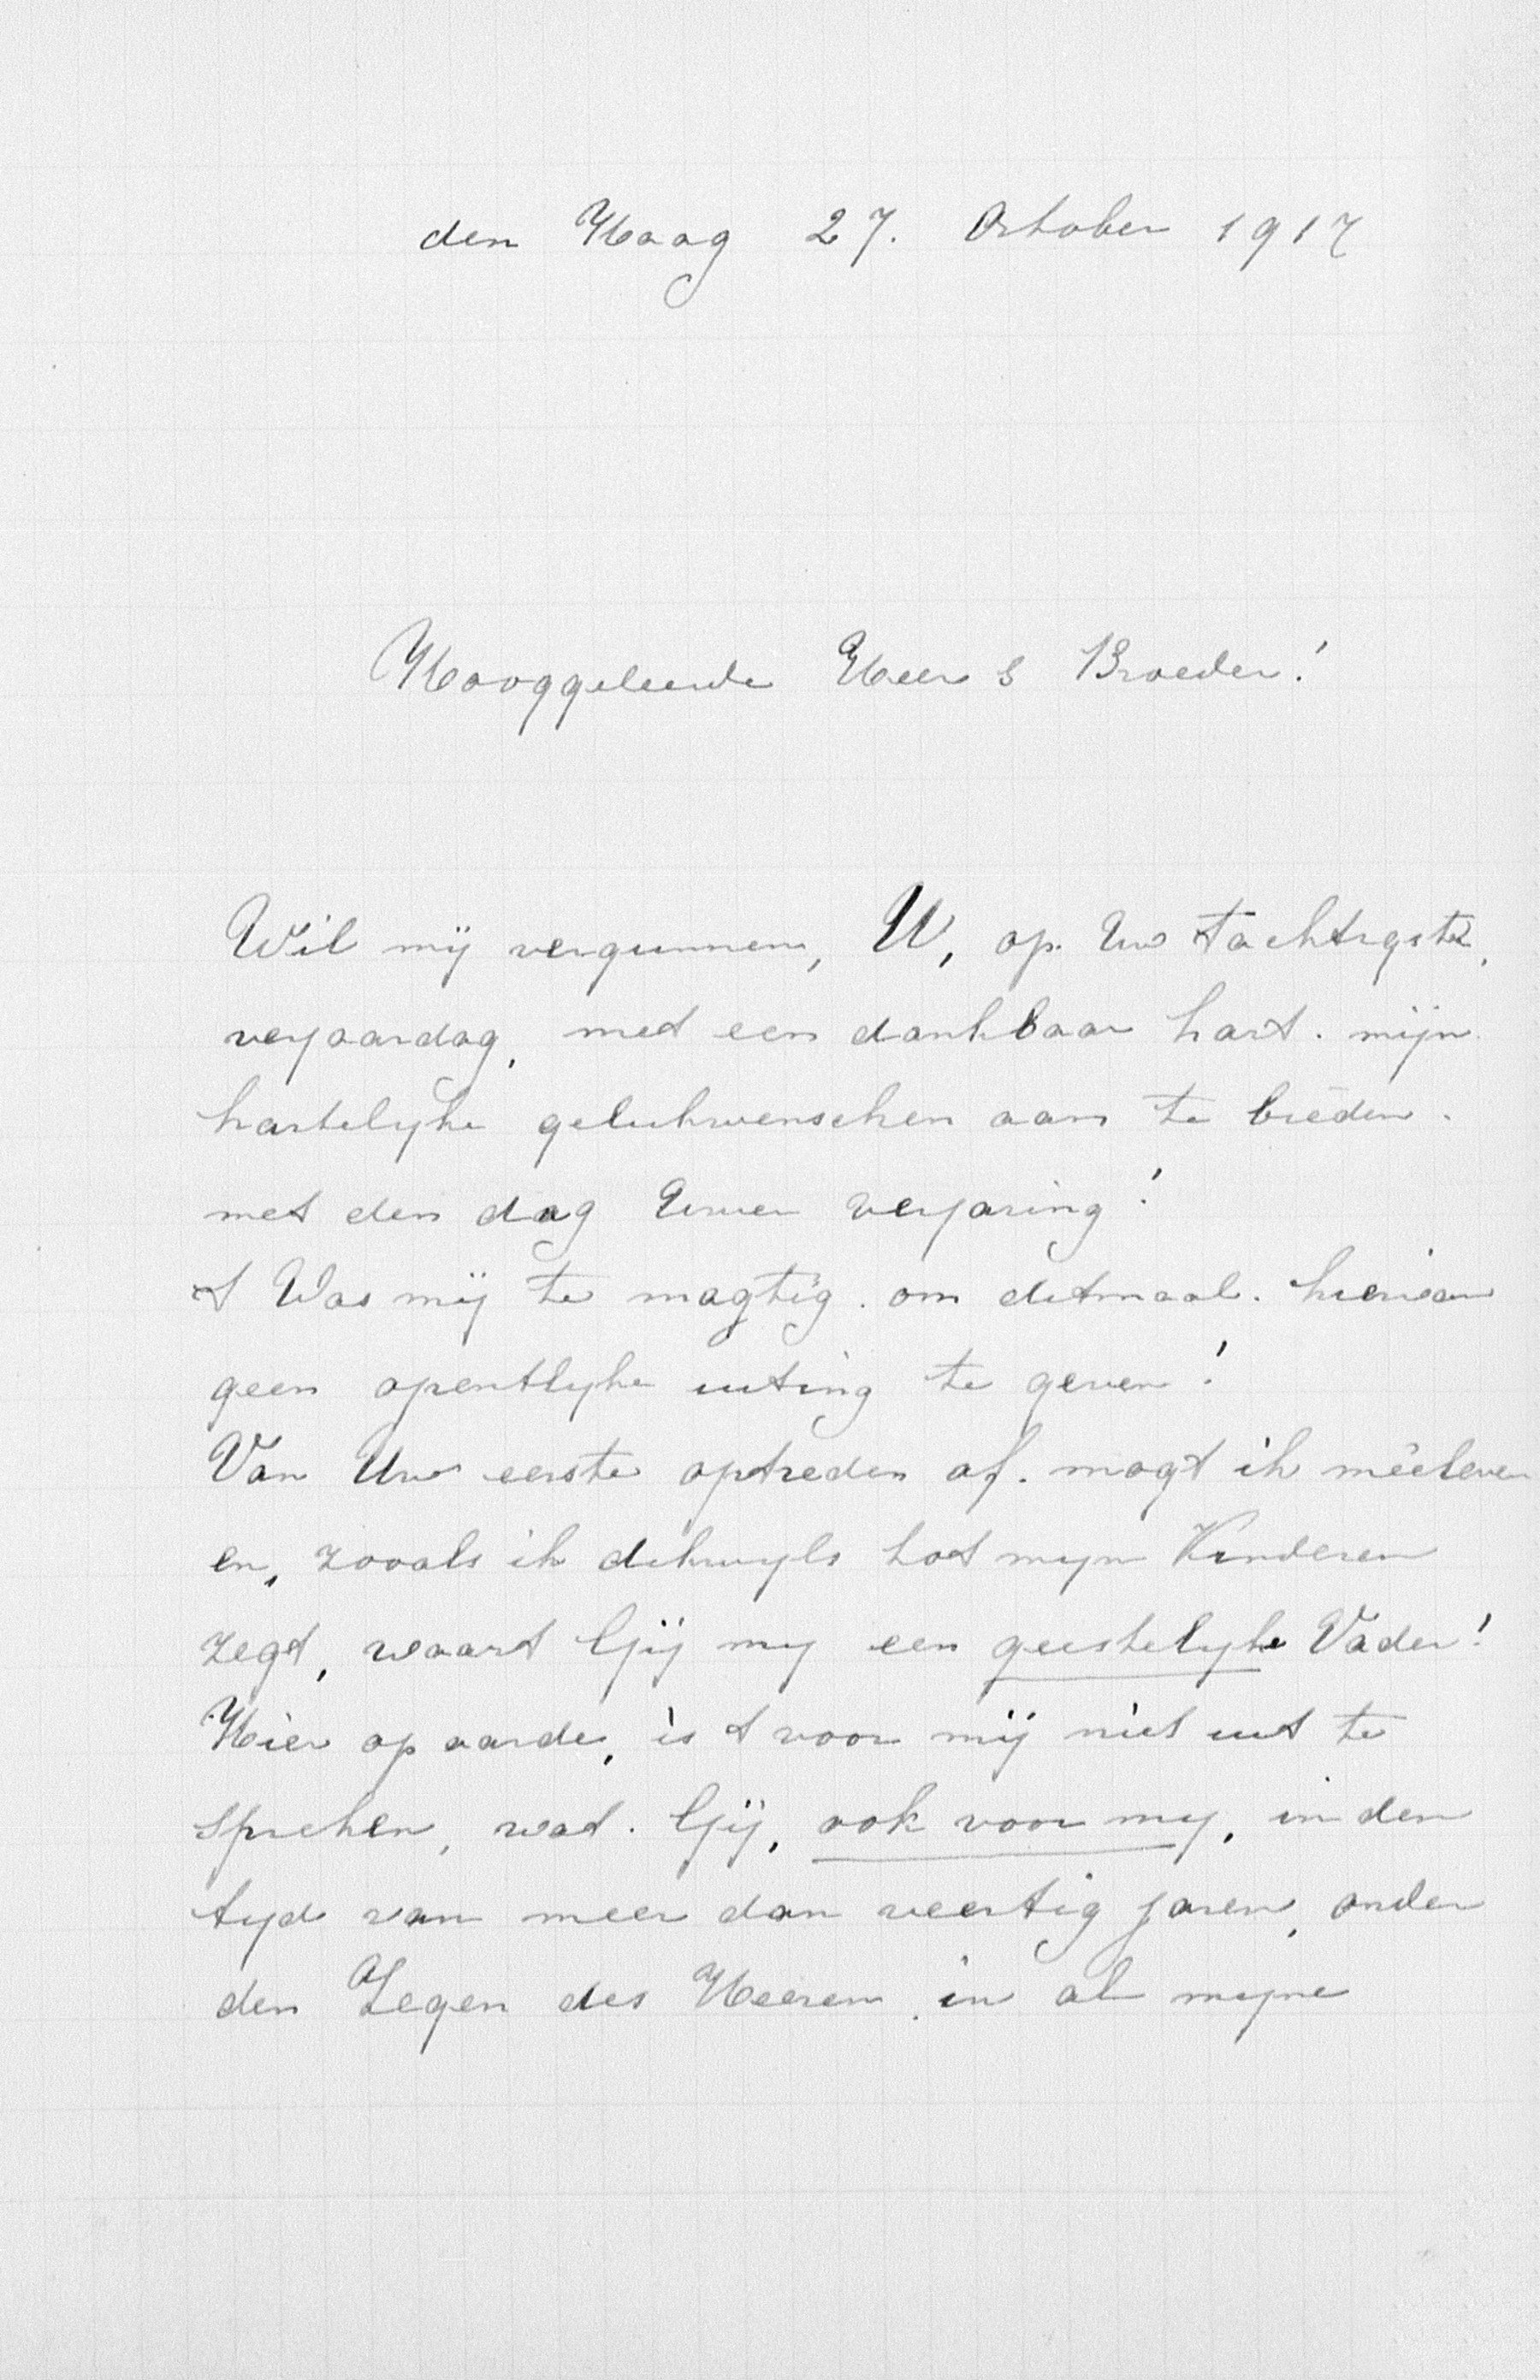 den Haag 27. October 1917
Hooggeleerde Heer & Broeder!
Wil mij vergunnen, U, op. Uw tachtigste,
verjaardag, met een dankbaar hart. mijn
hartelyke gelukwenschen aan te bieden.
met den dag Uwer verjaring!
t Was mij te magtig. om ditmaal. hiervan
geen opentlyke uiting te geven!
Van Uw eerste optreden af. mogt ik méêleven
en, zooals ik dikwyls tot myn Kinderen
zegt, waart Gij my een geestelyke Vader!
Hier op aarde, is t voor mij niet uit te
spreken, wat. Gij, ook voor my, in den
tyd van meer dan veertig jaren, onder
den Zegen des Heeren, in al myne